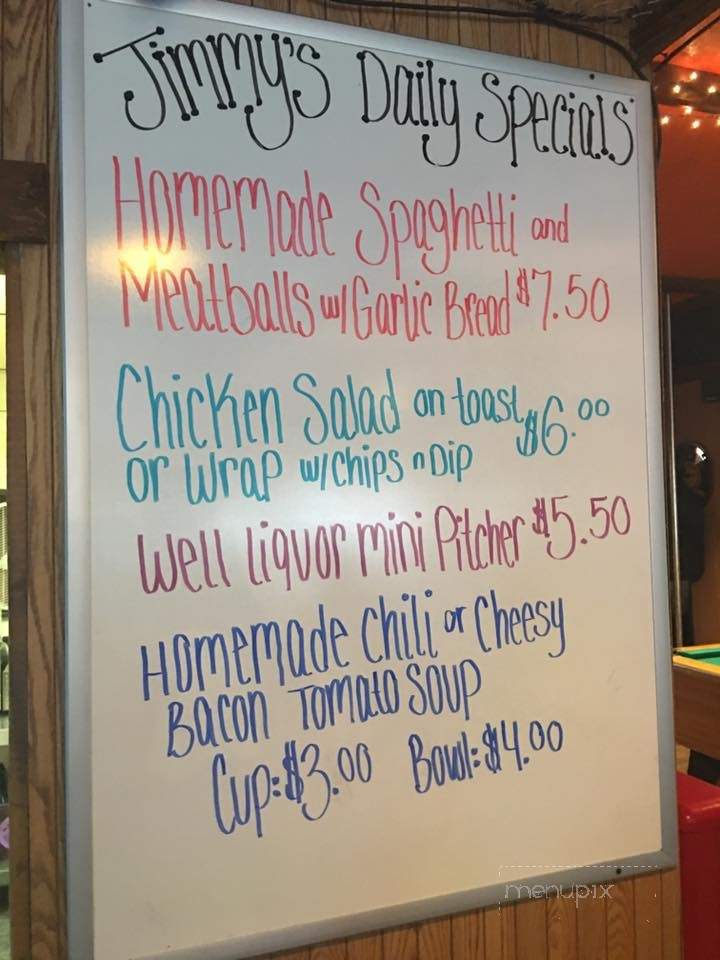 Jimmy's Daily Specials
Homemade Spaghetti and
Meatballs w/ Garlic Bread $7.50
Chicken Salad on toast $6.00
or Wrap w/ chips n Dip
Well liquor mini Pitcher $5.50
Homemade chili or Cheesy
Bacon Tomato Soup
Cup: $3.00 Bowl: $4.00
menupix